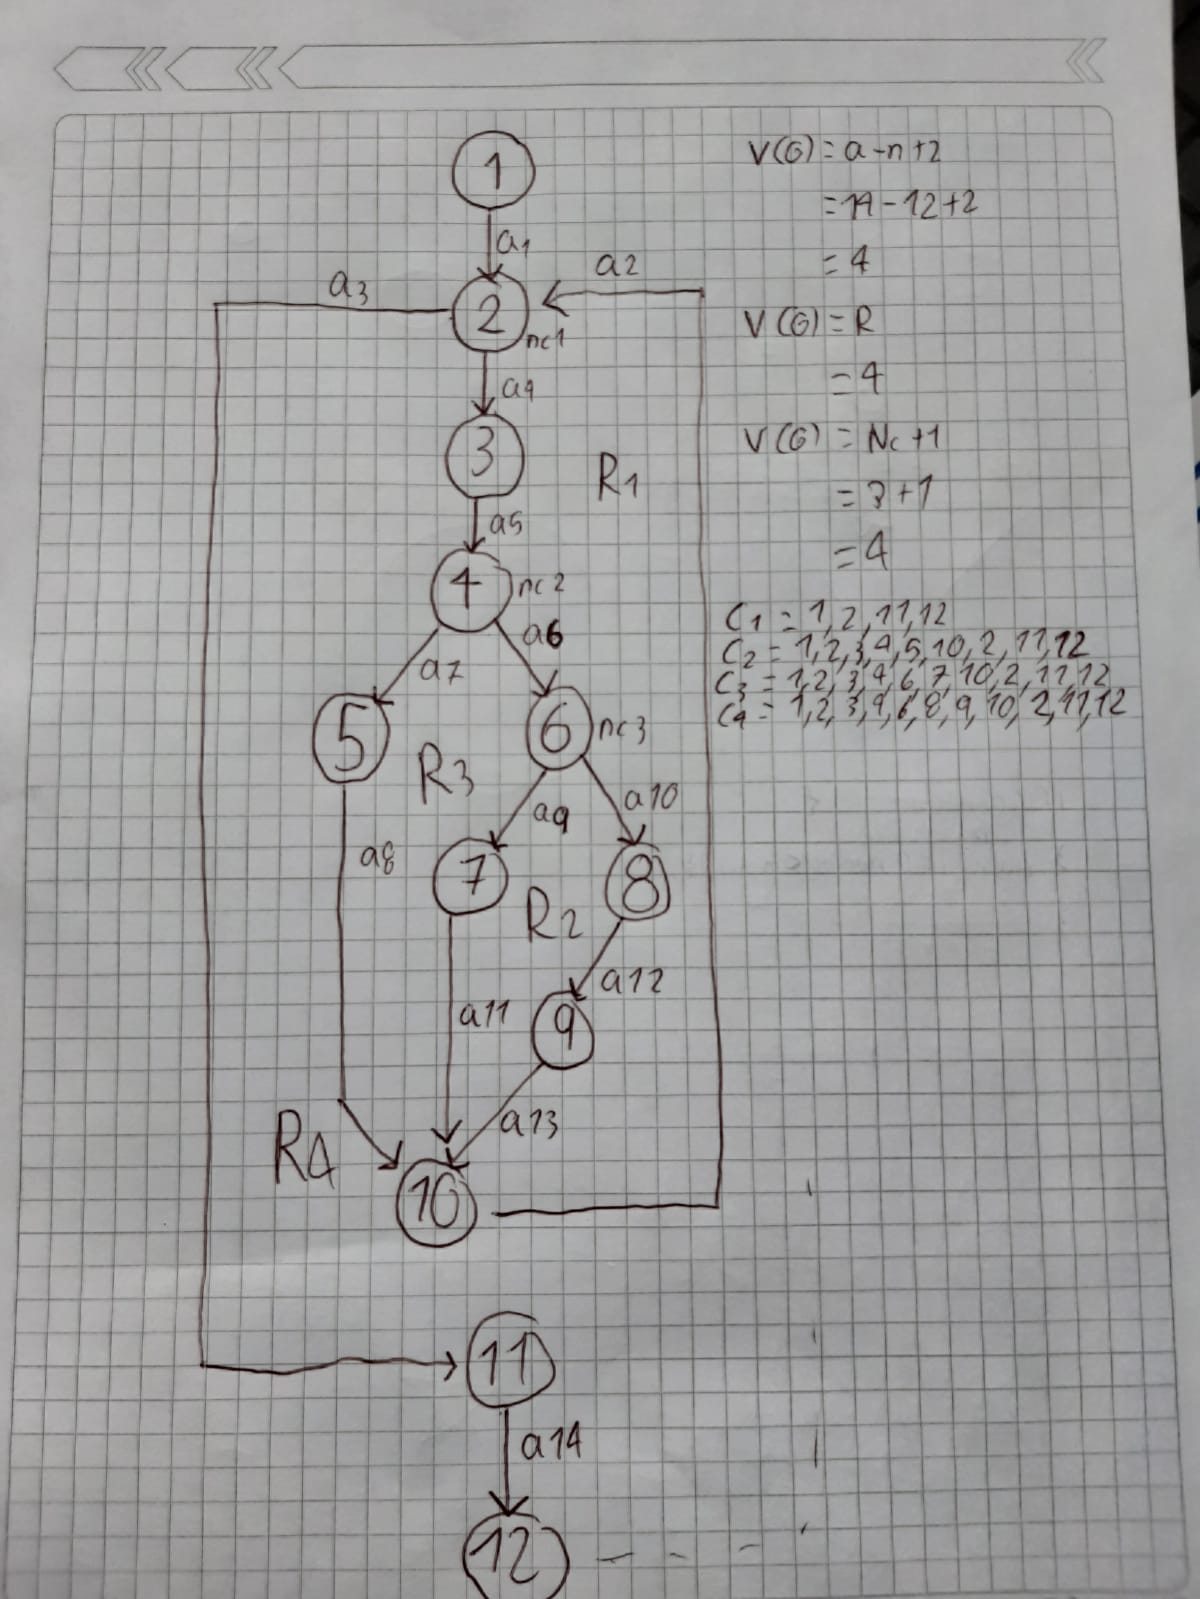 1
a1
a2
a3
2
nc1
a4
3
R1
a5
4
nc2
a6
a7
5
6
nc3
R3
a9
a10
a8
7
8
R2
a12
a11
9
a13
R4
10
11
a14
12
V(G) = a-n+2
= 14-12+2
= 4
V(G) = R
= 4
V(G) = Nc +1
= 3+1
= 4
C1 = 1,2,11,12
C2 = 1,2,3,4,5,10,2,11,12
C3 = 1,2,3,4,6,7,10,2,11,12
C4 = 1,2,3,4,6,8,9,10,2,11,12